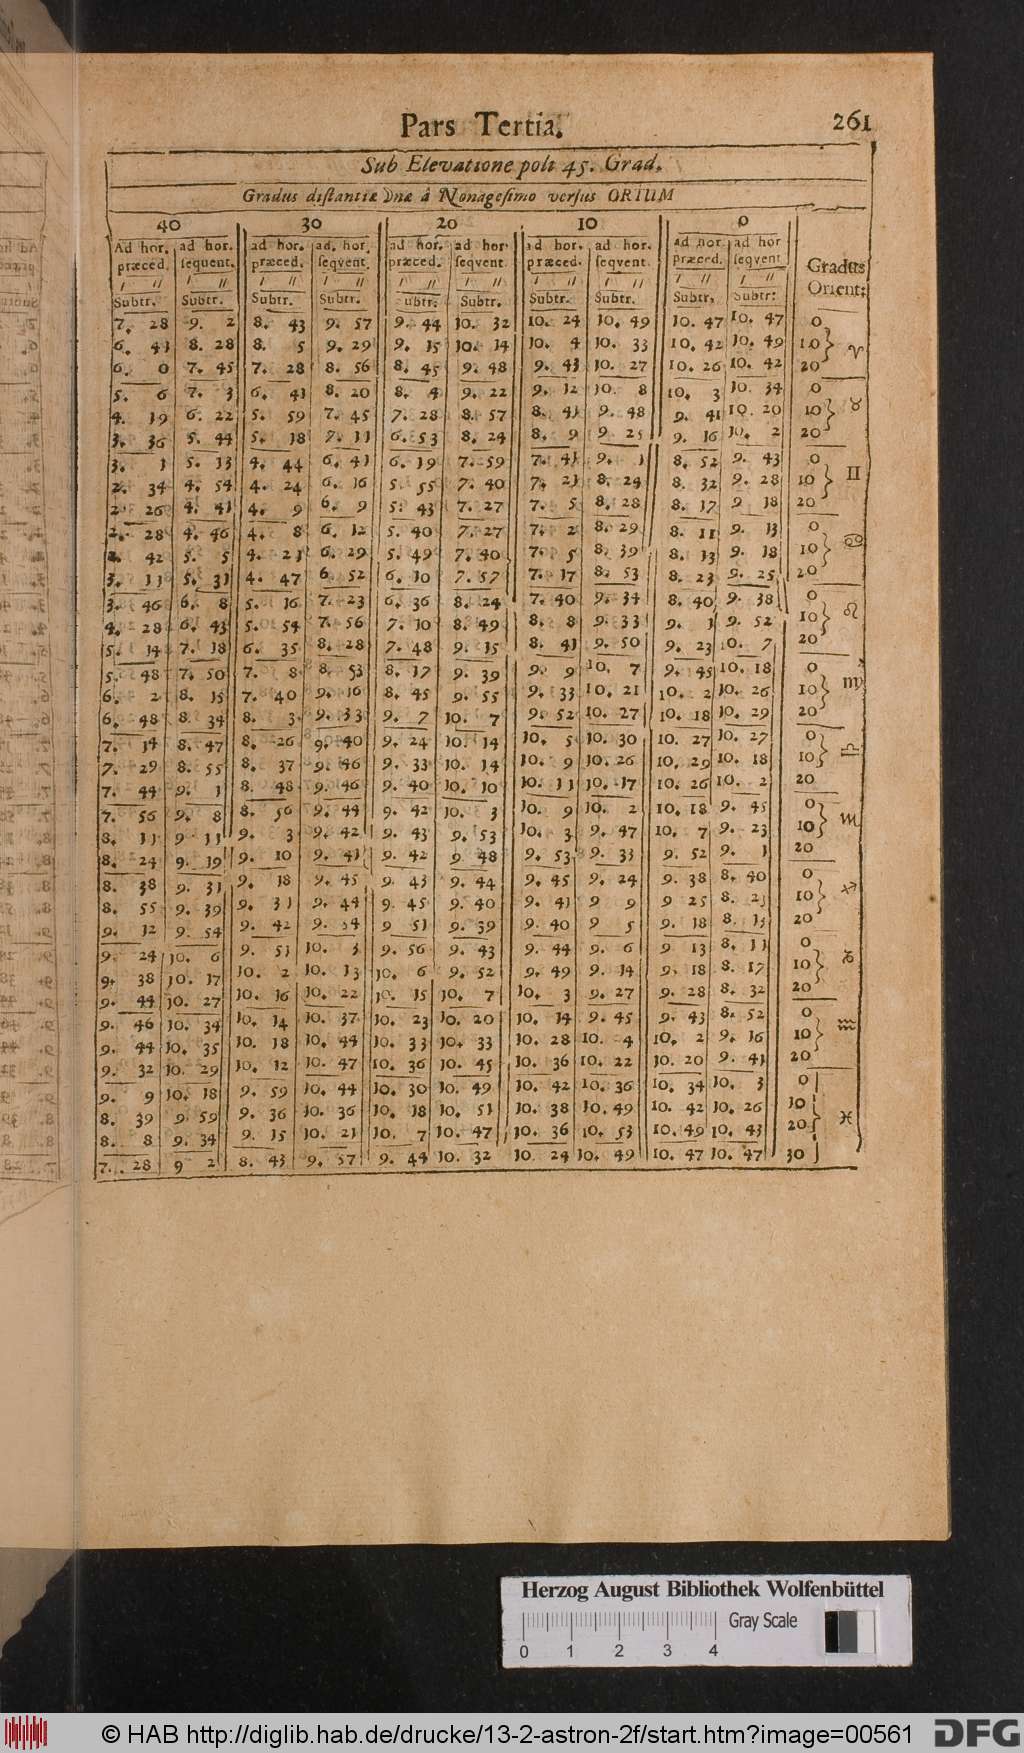 Pars Tertia. 261
Sub Elevatione poli 45. Grad.
Gradus distantiæ Dnæ â Nonagesimo versus ORTUM
40 30 20 10 0
Ad hor. ad hor. ad hor. ad. hor ad hor. ad hor ad hor. ad hor. ad hor ad hor Gradus
præced. sequent. præced. seqvent. præced. seqvent. præced. seqvent. præced. seqvent Orient:
Subtr. Subtr. Subtr. Subtr. Subtr. Subtr. Subtr. Subtr. Subtr. Subtr:
7. 28 9. 2 8. 43 9. 57 9. 44 10. 32 10. 24 10. 49 10. 47 10. 47 0
6. 43 8. 28 8. 5 9. 29 9. 15 10. 14 10. 4 10. 33 10. 42 10. 49 10 ♈
6. 0 7. 45 7. 28 8. 56 8. 45 9. 48 9. 43 10. 27 10. 26 10. 42 20
5. 6 7. 3 6. 43 8. 20 8. 4 9. 22 9. 12 10. 8 10. 3 10. 34 0
4. 19 6. 22 5. 59 7. 45 7. 28 8. 57 8. 43 9. 48 9. 41 10. 20 10 ♉
3. 36 5. 44 5. 18 7. 11 6. 53 8. 24 8. 9 9 25 9. 16 10. 2 20
3. 1 5. 13 4. 44 6. 43 6. 19 7. 59 7. 43 9. 1 8. 52 9. 43 0
2. 34 4. 54 4. 24 6. 16 5. 55 7. 40 7. 23 8. 24 8. 32 9. 28 10 ♊
2. 26 4. 41 4. 9 6. 9 5. 43 7. 27 7. 5 8. 28 8. 17 9 18 20
2. 28 4. 46 4. 8 6. 12 5. 40 7. 27 7. 2 8. 29 8. 11 9. 13 0
2. 42 5. 5 4. 23 6. 29 5. 49 7. 40 7. 5 8. 39 8. 13 9. 18 10 ♋
3. 13 5. 31 4. 47 6. 52 6. 10 7. 57 7. 17 8. 53 8. 23 9. 25 20
3. 46 6. 8 5. 16 7. 23 6. 36 8. 24 7. 40 9. 34 8. 40 9. 38 0
4. 28 6. 43 5. 54 7. 56 7. 10 8. 49 8. 8 9. 33 9. 1 9. 52 10 ♌
5. 14 7. 18 6. 35 8. 28 7. 48 9. 15 8. 41 9. 50 9. 23 10. 7 20
5. 48 7. 50 7. 8 8. 53 8. 17 9. 39 9. 9 10. 7 9. 45 10. 18 0
6. 2 8. 15 7. 40 9. 16 8. 45 9. 55 9. 33 10. 21 10. 2 10. 26 10 ♍
6. 48 8. 34 8. 3 9. 33 9. 7 10. 7 9. 52 10. 27 10. 18 10. 29 20
7. 14 8. 47 8. 26 9. 40 9. 24 10. 14 10. 5 10. 30 10. 27 10. 27 0
7. 29 8. 55 8. 37 9. 46 9. 33 10. 14 10. 9 10. 26 10. 29 10. 18 10 ♎
7. 44 9. 1 8. 48 9. 46 9. 40 10. 10 10. 11 10. 17 10. 26 10. 2 20
7. 56 9. 8 8. 56 9. 44 9. 42 10. 3 10. 9 10. 2 10. 18 9. 45 0
8. 11 9 11 9. 3 9. 42 9. 43 9. 53 10. 3 9. 47 10. 7 9. 23 10 ♏
8. 24 9. 19 9. 10 9. 41 9. 42 9 48 9. 53 9. 33 9. 52 9. 1 20
8. 38 9. 31 9. 18 9. 45 9. 43 9. 44 9. 45 9. 24 9. 38 8. 40 0
8. 55 9. 39 9. 31 9. 44 9. 45 9. 40 9. 41 9 9 9 25 8. 23 10 ♐
9. 12 9. 54 9. 42 9. 54 9 51 9. 39 9. 40 9 5 9. 18 8. 15 20
9. 24 10. 6 9. 51 10. 3 9. 56 9. 43 9. 44 9. 6 9 13 8. 11 0
9. 38 10. 17 10. 2 10. 13 10. 6 9. 52 9. 49 9. 14 9. 18 8. 17 10 ♑
9. 44 10. 27 10. 16 10. 22 10. 15 10. 7 10. 3 9. 27 9. 28 8. 32 20
9. 46 10. 34 10. 14 10. 37 10. 23 10. 20 10. 14 9. 45 9. 43 8. 52 0
9. 44 10. 35 10. 18 10. 44 10. 33 10. 33 10. 28 10. 4 10. 2 9. 16 10 ♒
9. 32 10. 29 10. 12 10. 47 10. 36 10. 45 10. 36 10. 22 10. 20 9. 41 20
9. 9 10. 18 9. 59 10. 44 10. 30 10. 49 10. 42 10. 36 10. 34 10. 3 0
8. 39 9. 59 9. 36 10. 36 10. 18 10. 51 10. 38 10. 49 10. 42 10. 26 10 ♓
8. 8 9. 34 9. 15 10. 21 10. 7 10. 47 10. 36 10. 53 10. 49 10. 43 20
7. 28 9 2 8. 43 9. 57 9. 44 10. 32 10. 24 10. 49 10. 47 10. 47 30
Herzog August Bibliothek Wolfenbüttel
Gray Scale
0 1 2 3 4
© HAB http://diglib.hab.de/drucke/13-2-astron-2f/start.htm?image=00561 DFG